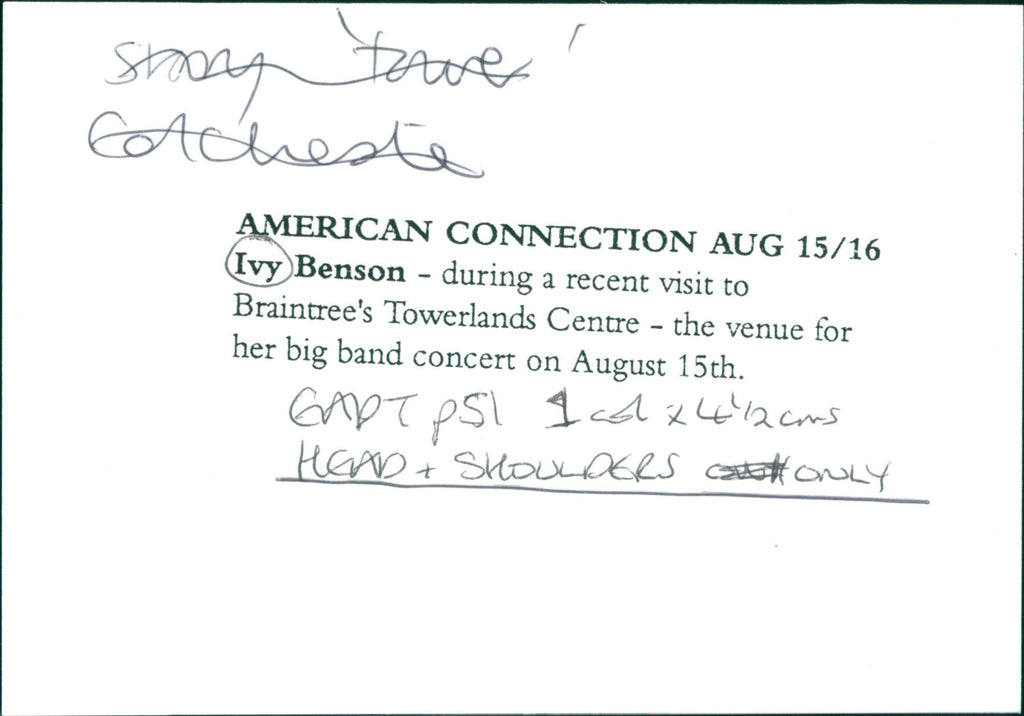 Story 'tower'
Colchester
AMERICAN CONNECTION AUG 15/16
Ivy Benson - during a recent visit to
Braintree's Towerlands Centre - the venue for
her big band concert on August 15th.
p51 1 col x 4 1/2 cms
HEAD + SHOULDERS ONLY